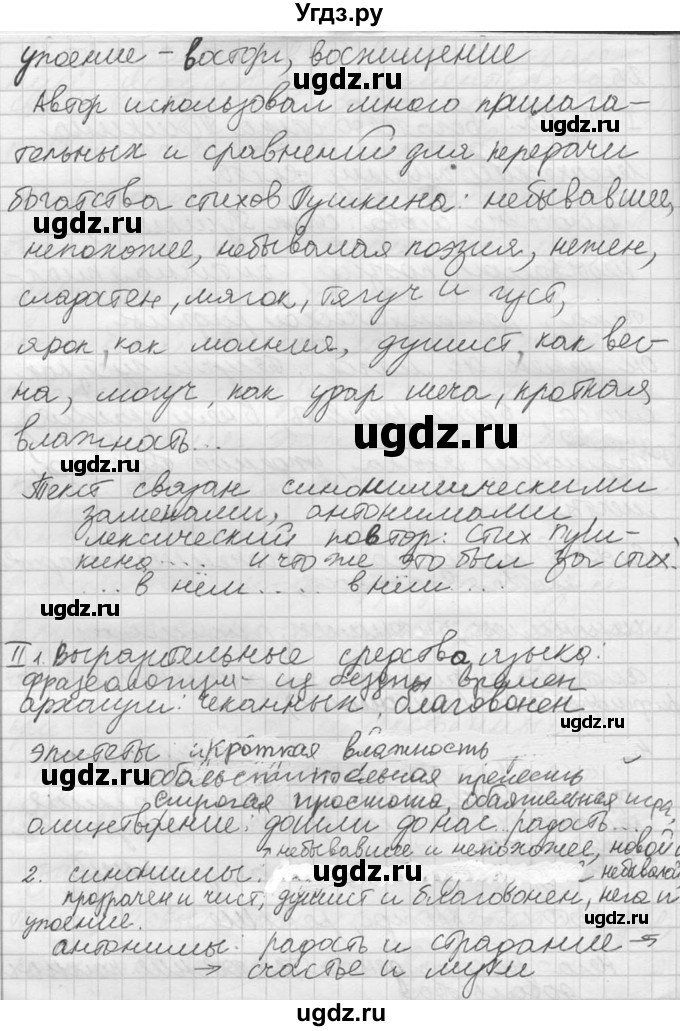 Угдз.ру
упоение – восторг, восхищение
ugdz.ru
Автор использовал много прилага-
ugdz.ru
тельных и сравнений для передачи
богатства стихов Пушкина: небывавшее,
ugdz.ru
непохожее, небывалая поэзия, нежен,
сладостен, мягок, тягуч и густ,
ярок, как молния, душист, как вес-
на, могуч, как удар меча, кроткая
влажность...
ugdz.ru
ugdz.ru
Текст связан синонимическими
заменами, антонимами
лексический повтор: Стих Пуш-
кина .... и что же это был за стих.
.... в нём .... в нём ....
ugdz.ru
II 1. Выразительные средства языка:
фразеологизм – из бездны времен
архаизм: чеканных, благовонен
ugdz.ru
эпитеты: кроткая влажность
обольстительная прелесть
ugdz.ru
строгая простота, обаятельная игра,
олицетворение: дошли до нас радость...
небывавшее и непохожее, новой
2. синонимы: небывалой
прозрачен и чист, душист и благовонен, нега и
упоение.
ugdz.ru
антонимы: радость и страдание
→ счастье и муки
ugdz.ru